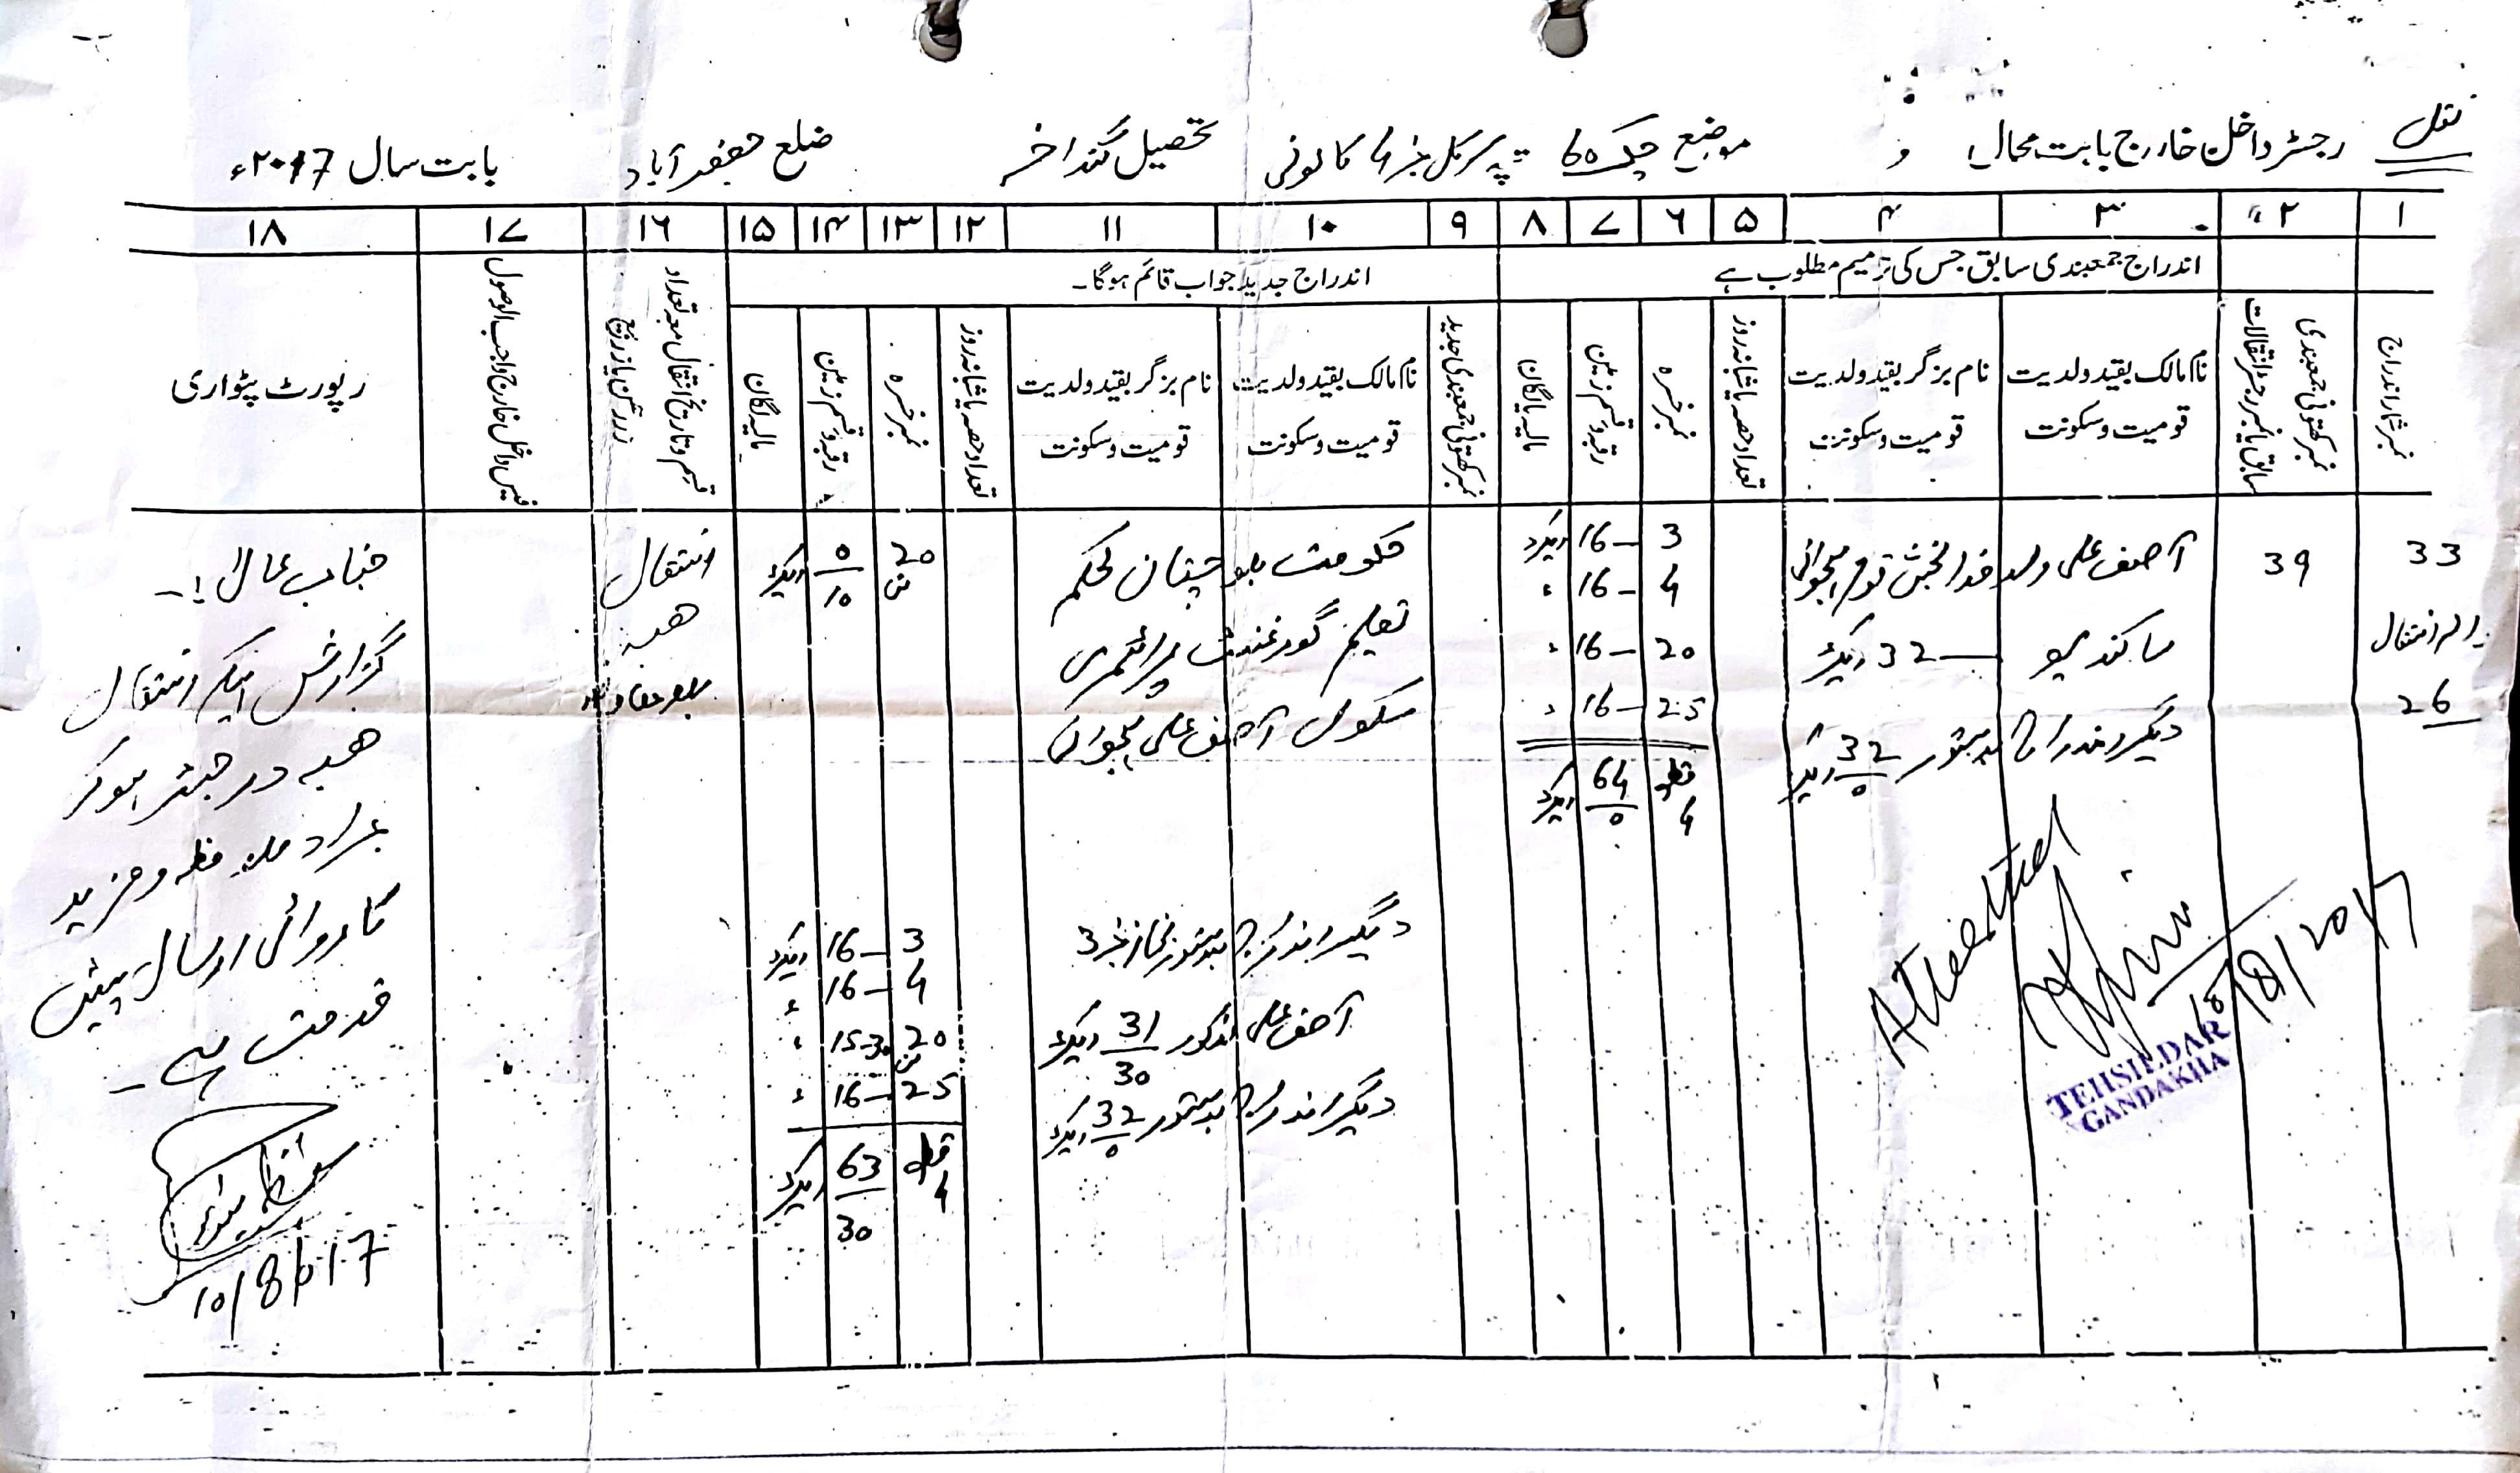 نقل
رجسٹر داخل خارج بابت محال و موضع چک 60 پیر سرکل نمبر 4 کالونی تحصیل گنداخہ ضلع جعفر آباد بابت سال ۲۰17ء
۱ ۲ ۳ ۴ ۵ ۶ ۷ ۸ ۹ ۱۰ ۱۱ ۱۲ ۱۳ ۱۴ ۱۵ ۱۶ ۱۷ ۱۸
اندراج جمعبندی سابق جس کی ترمیم مطلوب ہے
اندراج جدید جواب قائم ہوگا۔
نمبر شمار اندراج
نمبر کھتونی جمعبندی سابق یا نمبر رجسٹر انتقالات
نام مالک بقید ولدیت
قومیت و سکونت
نام بزگر بقید ولدیت
قومیت و سکونت
تعداد حصہ یا شبانہ روز
نمبر خسرہ
رقبہ و قسم زمین
مالیہ یا لگان
نمبر کھتونی جمعبندی جدید
نام مالک بقید ولدیت
قومیت و سکونت
نام بزگر بقید ولدیت
قومیت و سکونت
تعداد حصہ یا شبانہ روز
نمبر خسرہ
رقبہ و قسم زمین
مالیہ لگان
قسم و تاریخ انتقال معہ تعداد زر رہن یا زر بیع
فیس داخل خارج واجب الوصول
رپورٹ پٹواری
33
انتقال
26
39
آصف علی ولد خدا بخش قوم
32 ایکڑ
دیگر اندراج بدستور 32/0 ایکڑ
3 16 ایکڑ
4 16 ″
20 16 ″
25 16 ″
قطعہ 4 64/0 ایکڑ
حکومت بلوچستان محکم
تعلیم گورنمنٹ پرائمری
سکول آصف علی
20 من 0/10 ایکڑ
انتقال
ھبہ
دیگر اندراج بدستور نمبر 3
آصف علی مذکور 31/30 ایکڑ
دیگر اندراج بدستور 32/0 ایکڑ
3 16 ایکڑ
4 16 ″
20 من 15-30 ″
25 16 ″
قطعہ 4 63/30 ایکڑ
جناب عالی!۔
گزارش ہیکہ انتقال
ھبہ درج رجسٹر ہوکر
بمراد ملاحظہ و مزید
کاروائی ارسال پیش
خدمت ہے۔
10/8/017
Attested
18/8/2017
TEHSILDAR
GANDAKHA